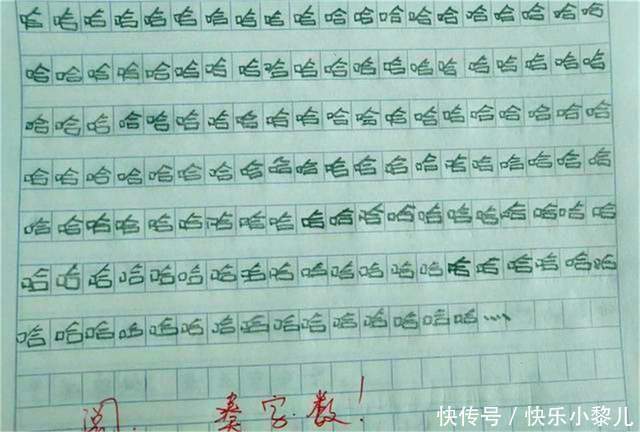 哈哈哈哈哈哈哈哈哈哈哈哈哈哈哈哈哈哈哈哈
哈哈哈哈哈哈哈哈哈哈哈哈哈哈哈哈哈哈哈哈
哈哈哈哈哈哈哈哈哈哈哈哈哈哈哈哈哈哈哈哈
哈哈哈哈哈哈哈哈哈哈哈哈哈哈哈哈哈哈哈哈
哈哈哈哈哈哈哈哈哈哈哈哈哈哈哈哈哈哈哈哈
哈哈哈哈哈哈哈哈哈哈哈哈哈哈哈哈哈哈哈哈
哈哈哈哈哈哈哈哈哈哈哈哈哈哈哈……
阅. 字数!
快传号/快乐小黎儿